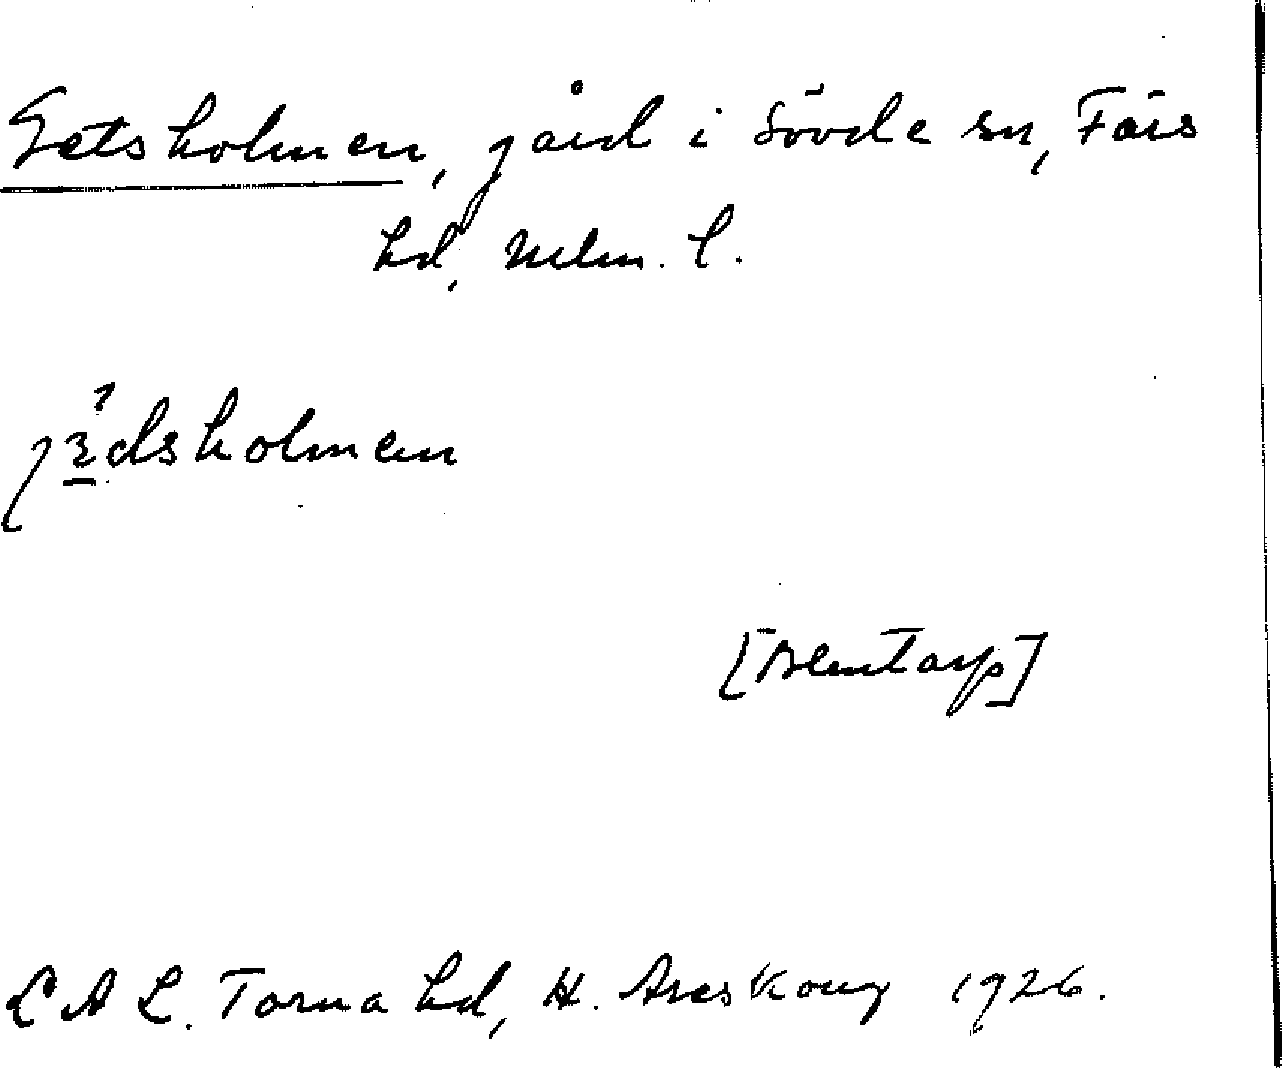 Getsholmen, gård i Sövde sn, Färs
hd, Mlm. l.
jædsholmen
[Blentarp]
L A L. Torna hd, H. Areskoug 1926.